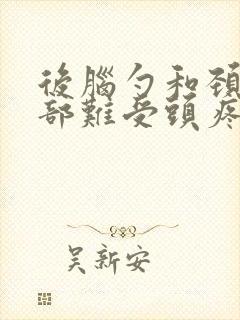 後腦勺和頸
部難受頭疼
吴新安